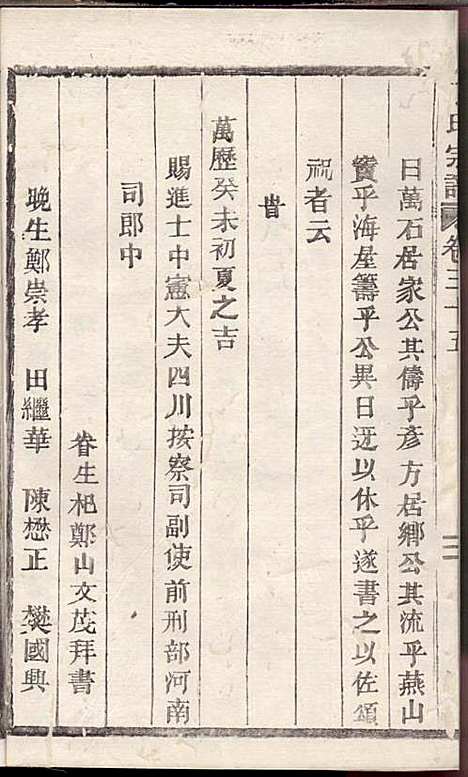 氏宗譜 卷三十五
曰萬石居家公其儔乎彥方居鄉公其流乎燕山
竇乎海屋籌乎公異日迓以休乎遂書之以佐頌
祝者云
旹
萬歷癸未初夏之吉
賜進士中憲大夫四川按察司副使前刑部河南
司郎中
眷生杞鄭山文茂拜書
晚生鄭崇孝 田繼華 陳懋正 樊國興